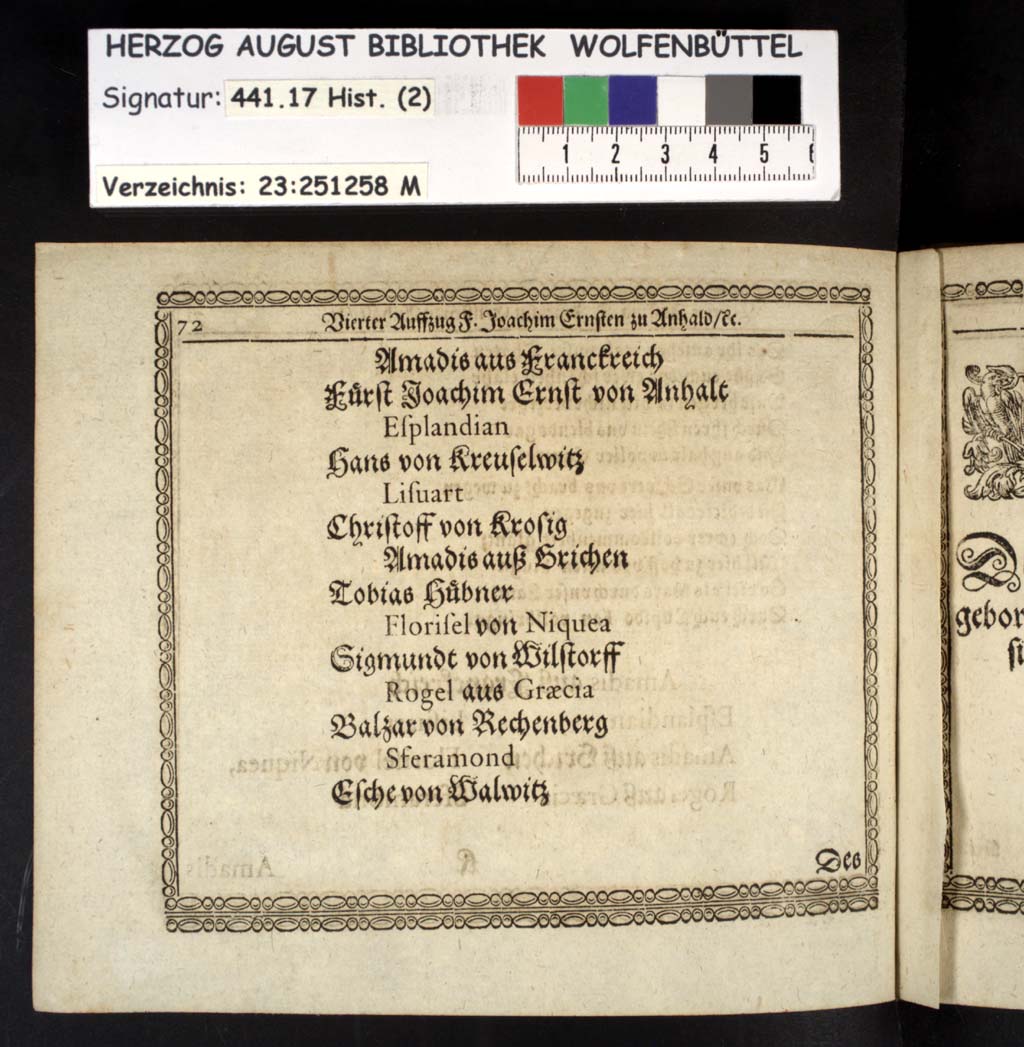 HERZOG AUGUST BIBLIOTHEK WOLFENBÜTTEL
Signatur: 441.17 Hist. (2)
1 2 3 4 5 6
Verzeichnis: 23:251258 M
72 Vierter Auffzug F. Joachim Ernsten zu Anhald/ꝛc.
Amadis aus Franckreich
Fuͤrst Joachim Ernst von Anhalt
Eſplandian
Hans von Kreuſelwitz
Liſuart
Chriſtoff von Kroſig
Amadis auß Grichen
Tobias Huͤbner
Floriſel von Niquea
Sigmundt von Wilſtorff
Rogel aus Græcia
Balzar von Rechenberg
Sferamond
Eſche von Walwitz
Des
gebor